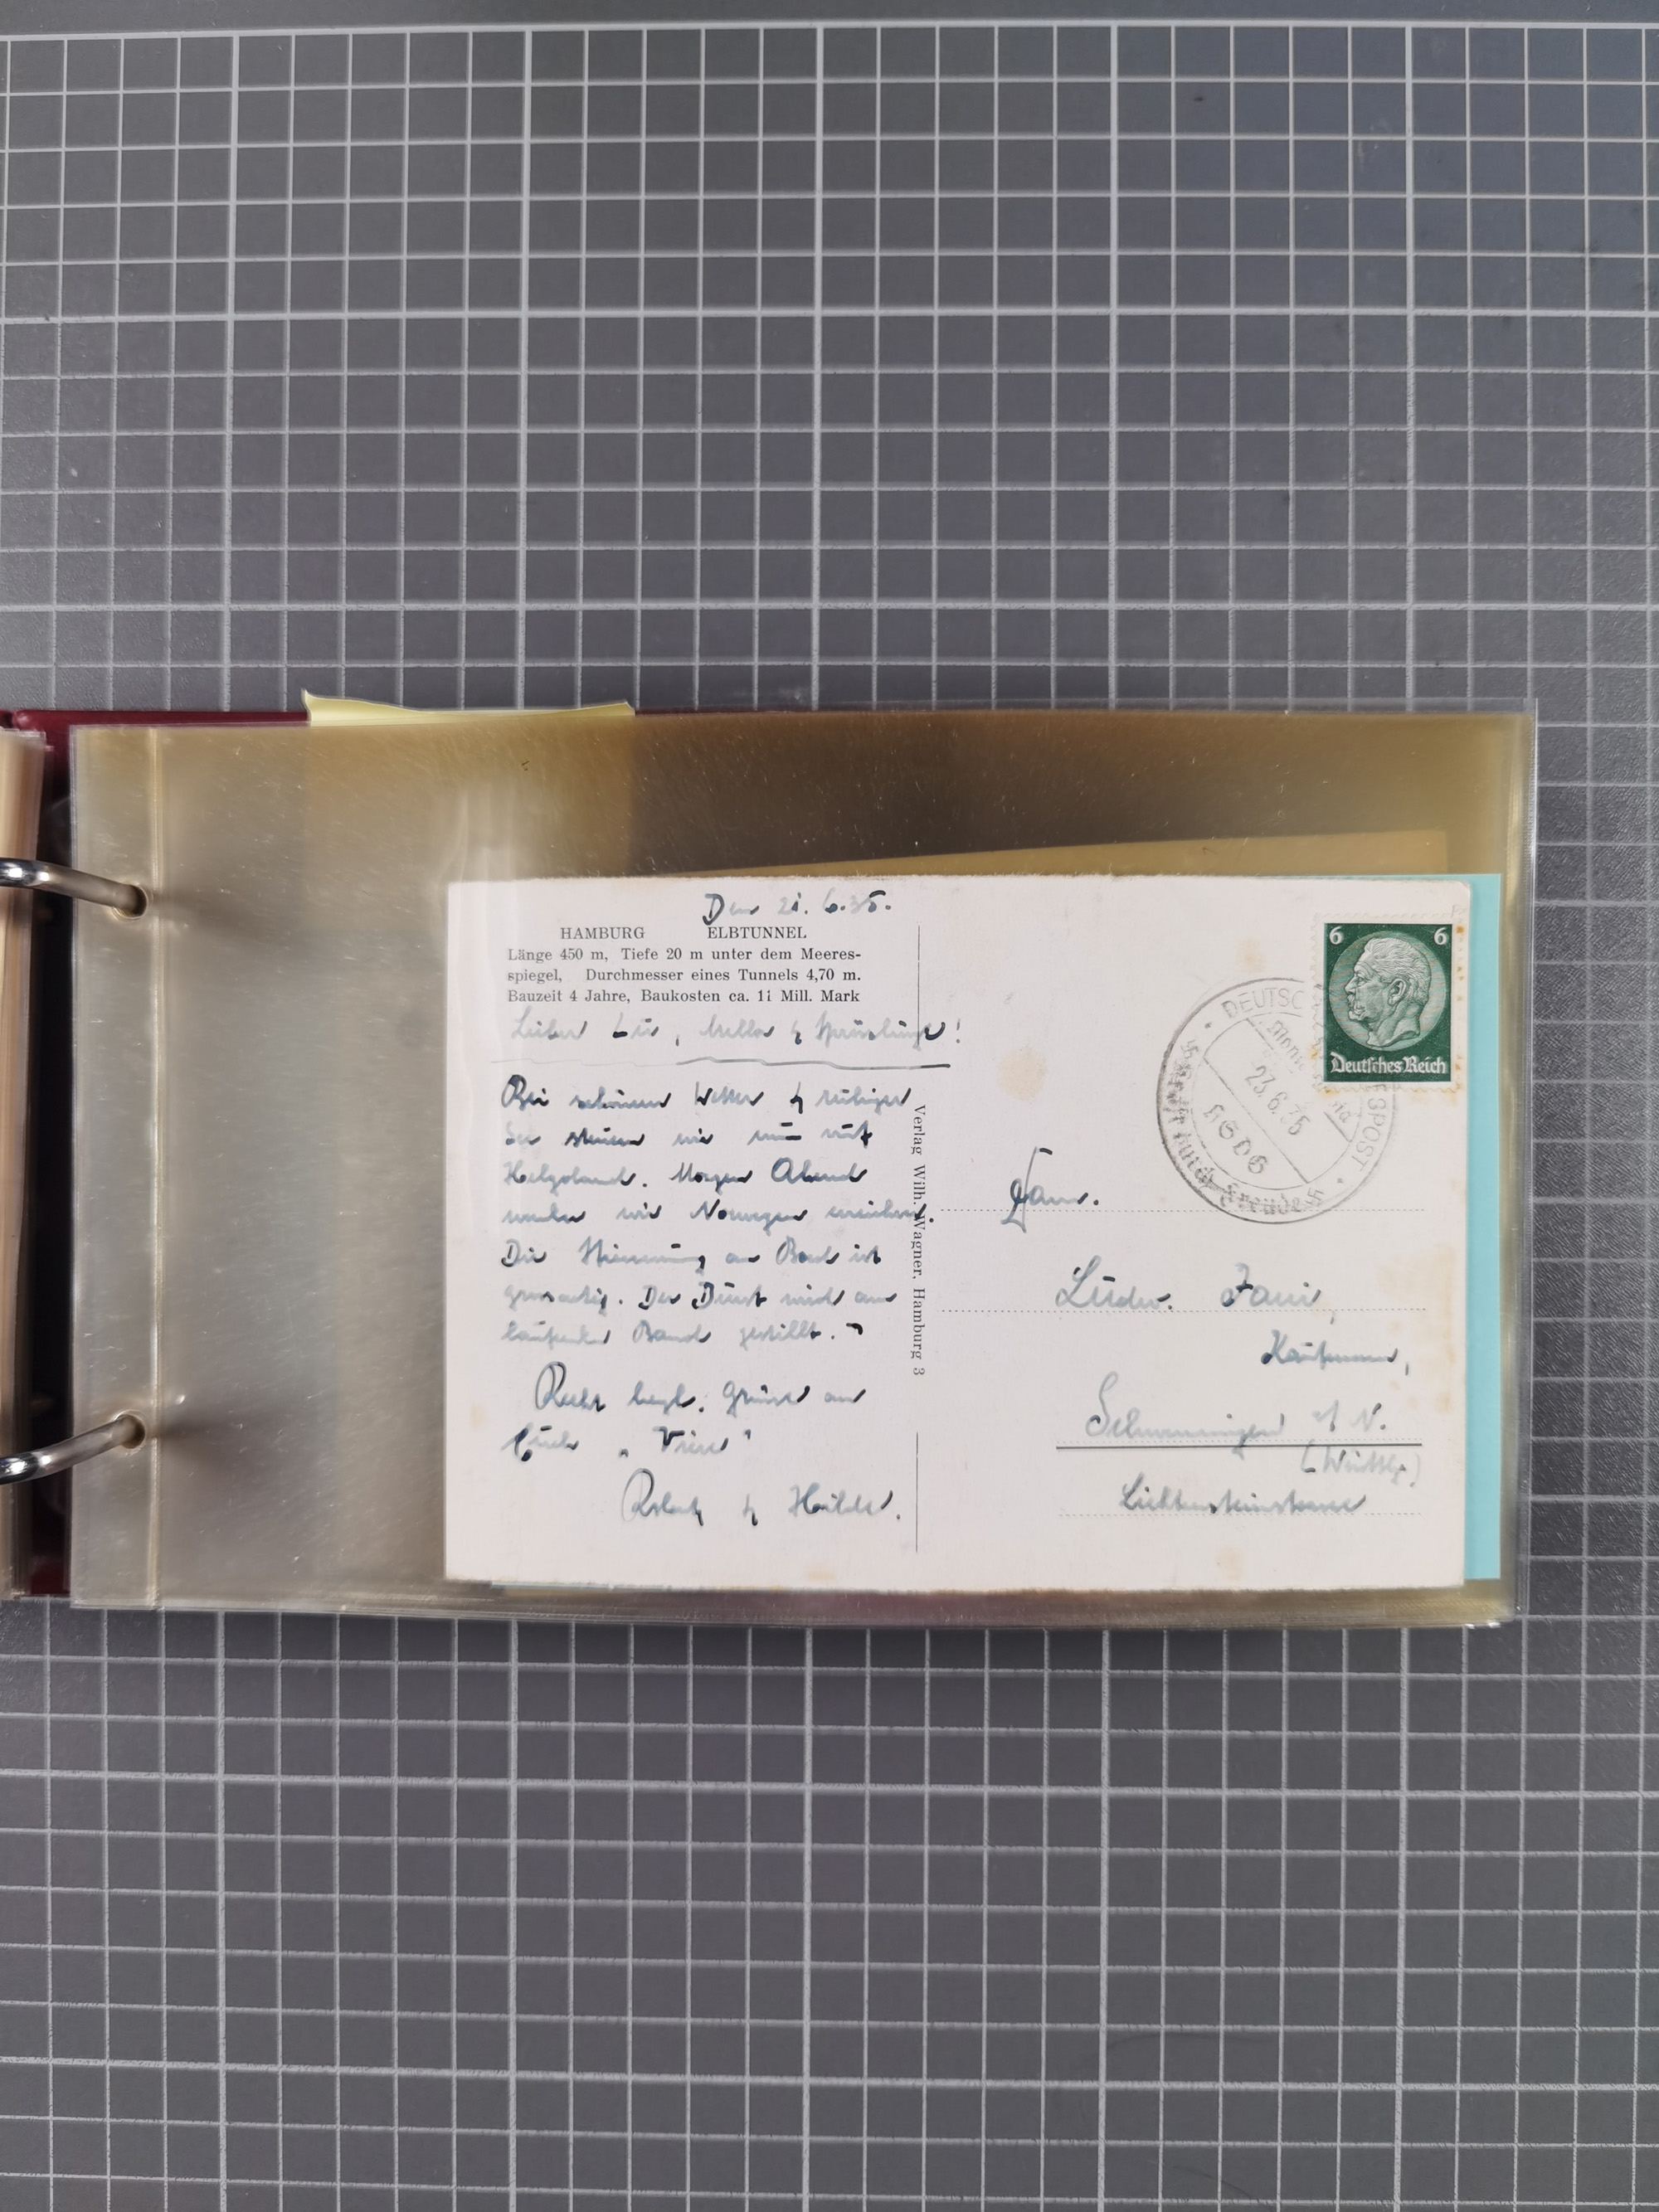 Den 21. 6.35.
HAMBURG ELBTUNNEL
Länge 450 m, Tiefe 20 m unter dem Meeres-
spiegel, Durchmesser eines Tunnels 4,70 m.
Bauzeit 4 Jahre, Baukosten ca. 11 Mill. Mark
Bei schönem Wetter & ruhiger
See steuern wir nun auf
Helgoland. Morgen Abend
werden wir Norwegen erreichen.
Die Stimmung an Bord ist
grossartig. Der Durst wird am
laufenden Band gestillt.
Recht herzl. Grüsse an
Euch "Viere"
& Hilde.
Verlag Wilh. Wagner, Hamburg 3
6 6
Deutsches Reich
DEUTSC SPOST
Monte
23.6.35
Kraft durch Freude
Fam.
Ludw.
Kaufmann,
Schwenningen a/N.
(Württbg.)
Lichtensteinstrasse